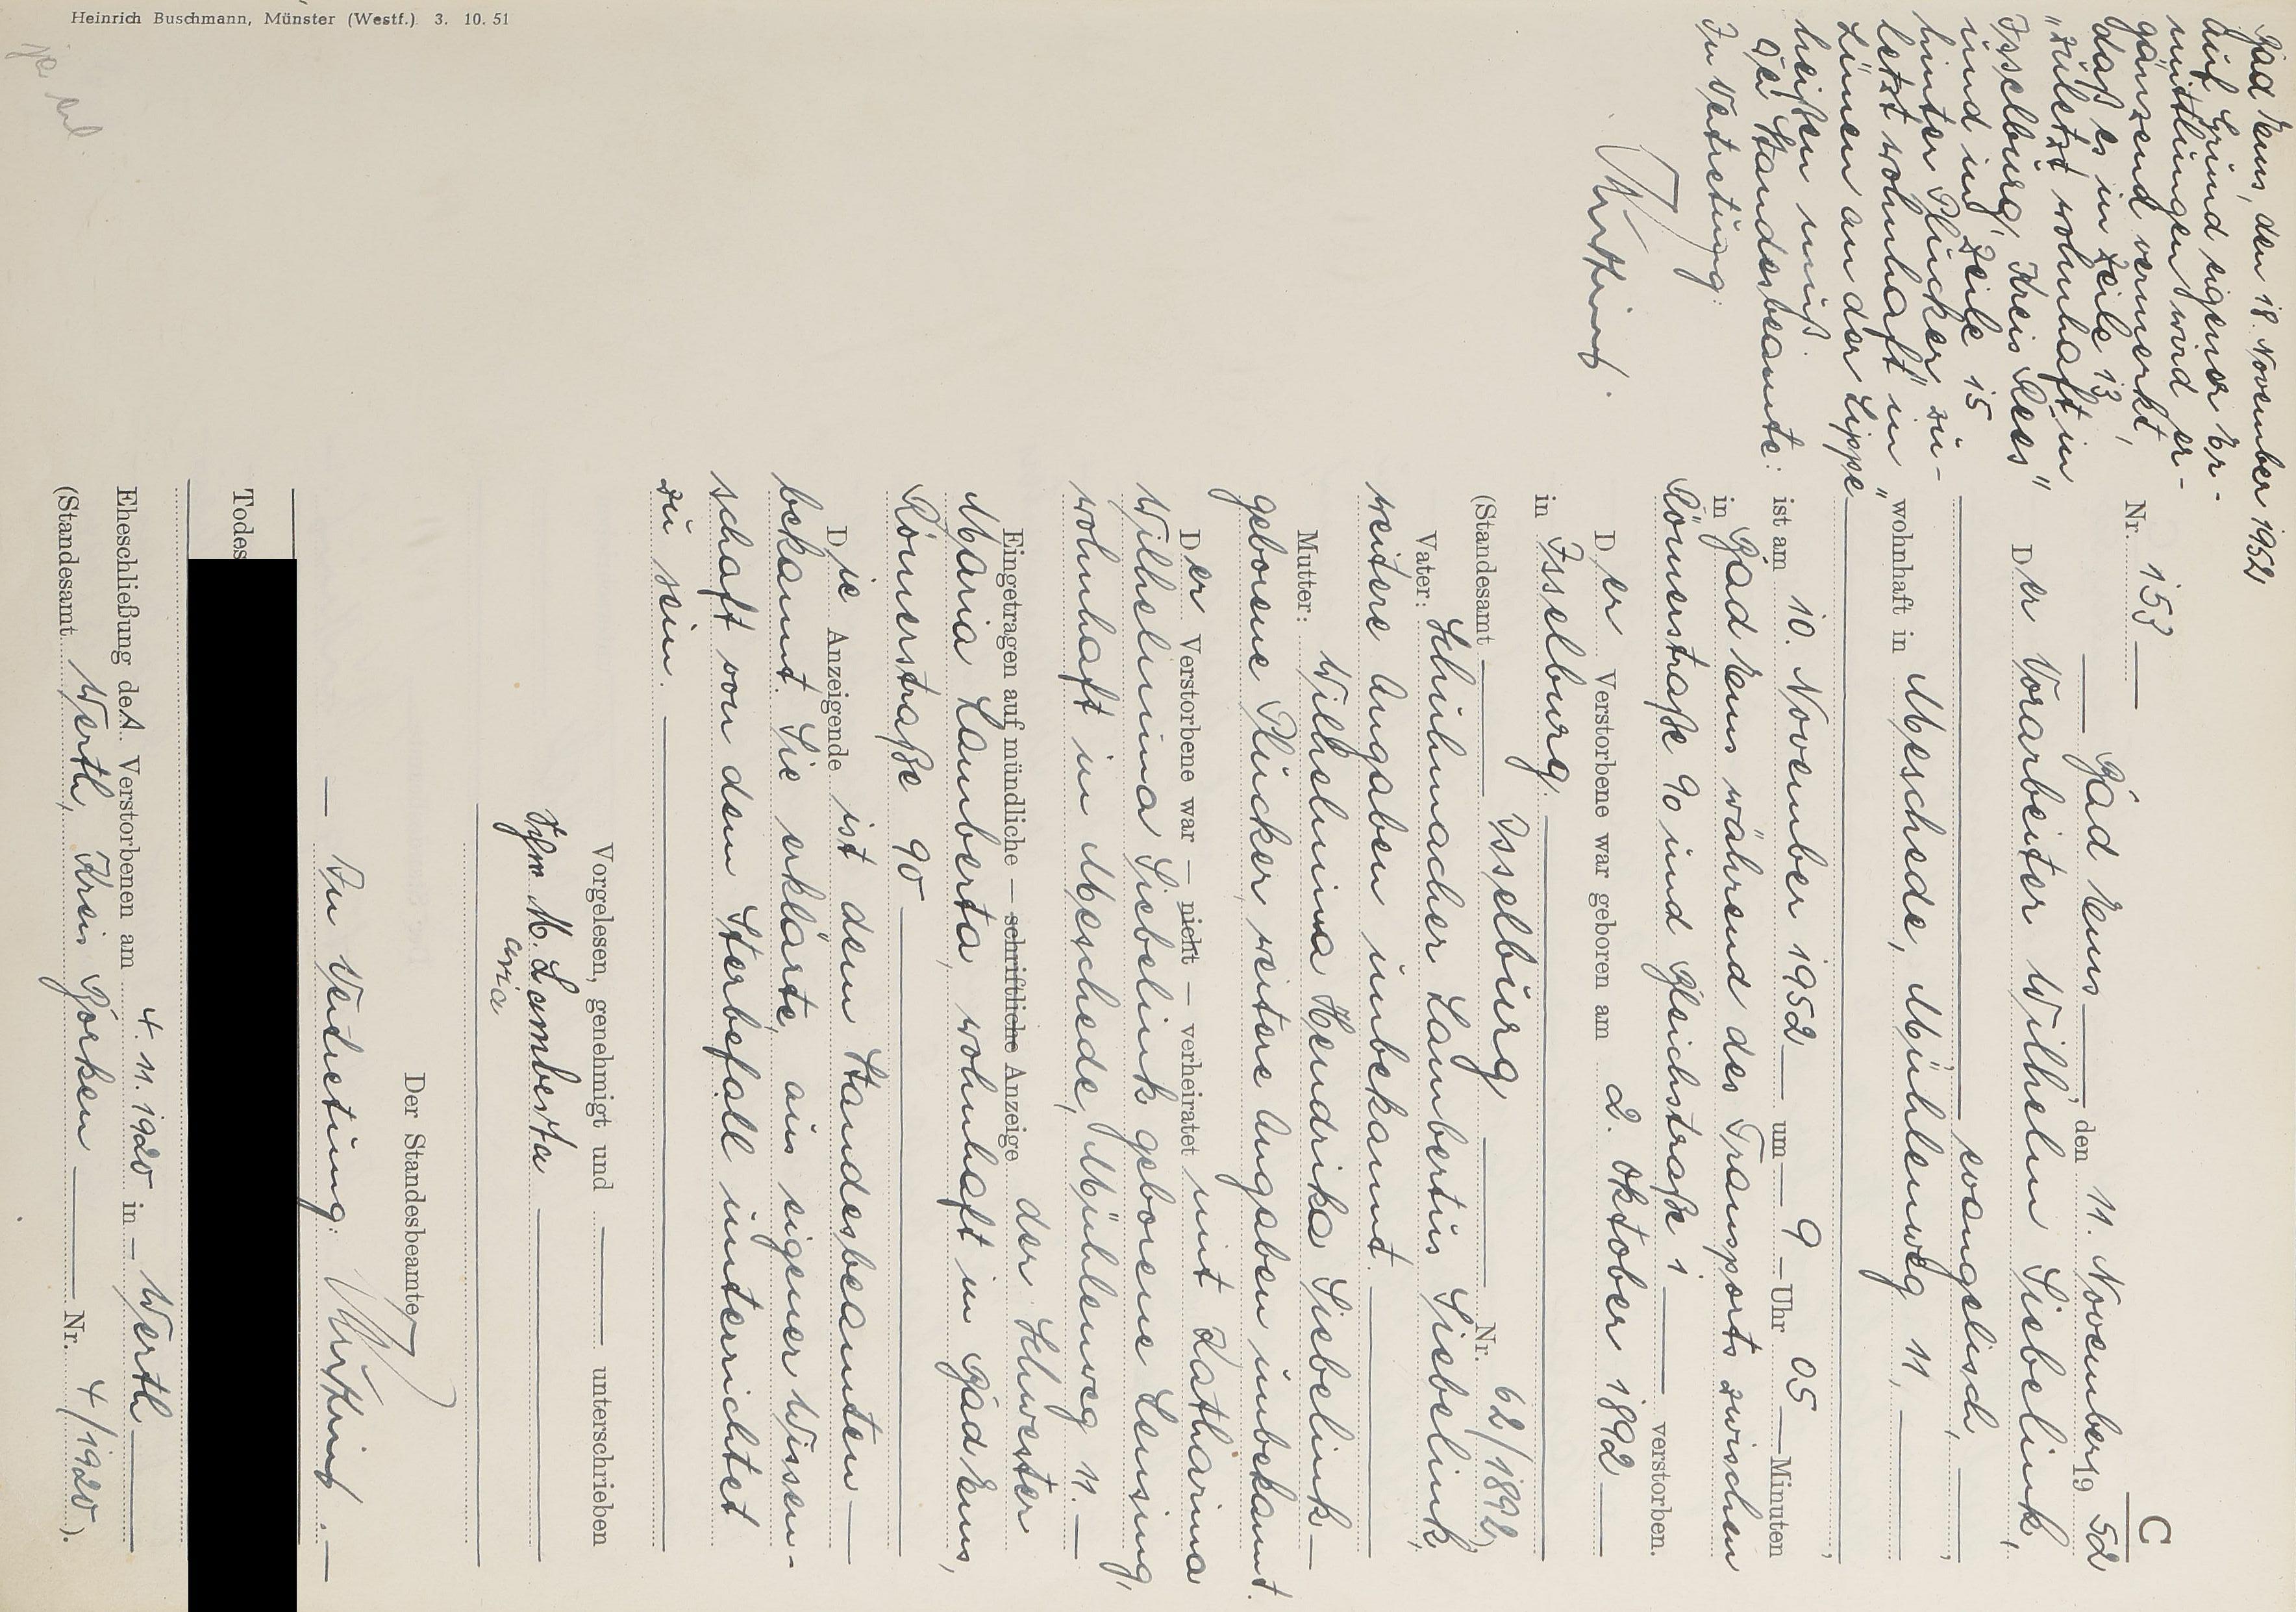 C
Nr. 153
Bad Ems, den 11. November 19 52
Der Vorarbeiter Wilhelm Siebelink,
evangelisch,
wohnhaft in Meschede, Mühlenweg 11,
ist am 10. November 1952 um 9 Uhr 05 Minuten
in Bad Ems während des Transports zwischen
Römerstraße 90 und Bleichstraße 1 verstorben.
Der Verstorbene war geboren am 2. Oktober 1892
in Isselburg.
(Standesamt Isselburg Nr. 62/1892)
Vater: Schuhmacher Lambertus Siebelink,
weitere Angaben unbekannt.
Mutter: Wilhelmina Hendrika Siebelink
geborene Plücker, weitere Angaben unbekannt.
Der Verstorbene war — nicht — verheiratet mit Katharina
Wilhelmina Siebelink geborene Lensing,
wohnhaft in Meschede, Mühlenweg 11.
Eingetragen auf mündliche — schriftliche Anzeige der Schwester
Maria Lamberta, wohnhaft in Bad Ems,
Römerstraße 90
Die Anzeigende ist dem Standesbeamten
bekannt. Sie erklärte, aus eigener Wissen-
schaft von dem Sterbefall unterrichtet
zu sein.
Vorgelesen, genehmigt und unterschrieben
M. Lamberta
Der Standesbeamte
In Vertretung:
Todes
Eheschließung des Verstorbenen am 4. 11. 1920 in Werth
(Standesamt Werth, Kreis Borken Nr. 4/1920).
Bad Ems, den 18. November 1952
Auf Grund eigener Er-
mittlungen wird er-
gänzend vermerkt,
daß es in Zeile 13,
"zuletzt wohnhaft in
Isselburg, Kreis Rees"
und in Zeile 15
hinter Plücker "zu-
letzt wohnhaft" in
Lünen an der Lippe"
heißen muß.
Der Standesbeamte:
In Vertretung:
Heinrich Buschmann, Münster (Westf.) 3. 10. 51